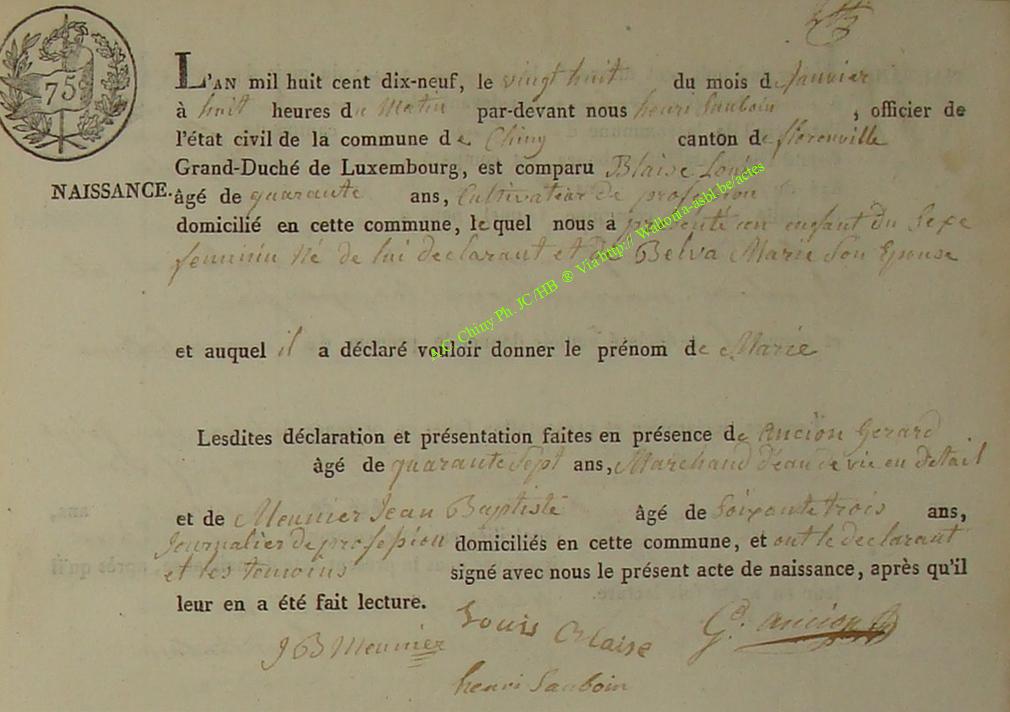 75
L'AN mil huit cent dix-neuf, le vingt huit du mois de Janvier
à huit heures du Matin par-devant nous henri Sauboin, officier de
l'état civil de la commune de Chiny canton de florenville
Grand-Duché de Luxembourg, est comparu Blaise Louis
NAISSANCE. âgé de quarante ans, Cultivateur de profession
domicilié en cette commune, lequel nous à présenté un enfant du Sexe
feminin Né de lui declarant et de Belva Marie Son Epouse
et auquel il a déclaré vouloir donner le prénom de Marie
A.C. Chiny Ph. JC /HB ® Via http:// Wallonia-asbl.be/actes
Lesdites déclaration et présentation faites en présence de Anciön Gerard
âgé de quarante Sept ans, Marchand d'eau de vie en détail
et de Meunier Jean Baptiste âgé de Soixante trois ans,
Journalier de profession domiciliés en cette commune, et ont le declarant
et les temoins signé avec nous le présent acte de naissance, après qu'il
leur en a été fait lecture.
J B Meunier Louis Blaise Gd. ancion
henri Sauboin